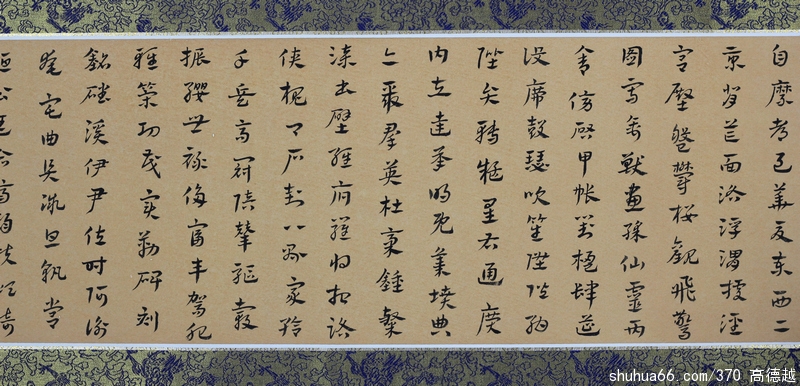 自縻都邑華夏东西二
京背芒面洛浮渭據涇
宮殿盤鬱樓觀飛驚
圖寫禽獸畫彩仙靈丙
舍傍啓甲帳對楹肆筵
設席鼓瑟吹笙陞階納
陛弁轉疑星右通廣
內左達承明既集墳典
亦聚群英杜稾鍾隸
漆書壁經府羅將相路
俠槐卿戶封八縣家給
千兵高冠陪輦驅轂
振纓世祿侈富車駕肥
輕策功茂實勒碑刻
銘磻溪伊尹佐時阿衡
奄宅曲阜微旦孰營
桓公匡合濟弱扶傾綺
shuhua66.com/370 高德越